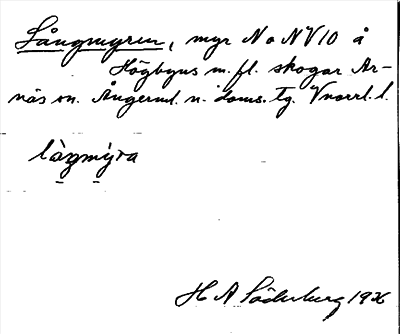 Långmyren, myr N o NV 10 å
Högbyns m. fl. skogar Ar-
näs sn. Ångerml. n. doms. tg. Vnorrl. l.
làŋmy̆ra
H A Söderburg 1926